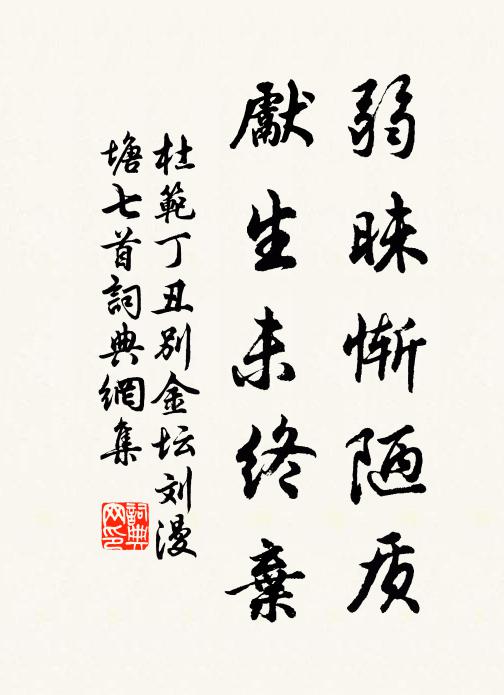 弱昧惭陋质
獻生未终棄
杜範丁丑别金坛刘漫
塘七首詞典網集
詞典
网印